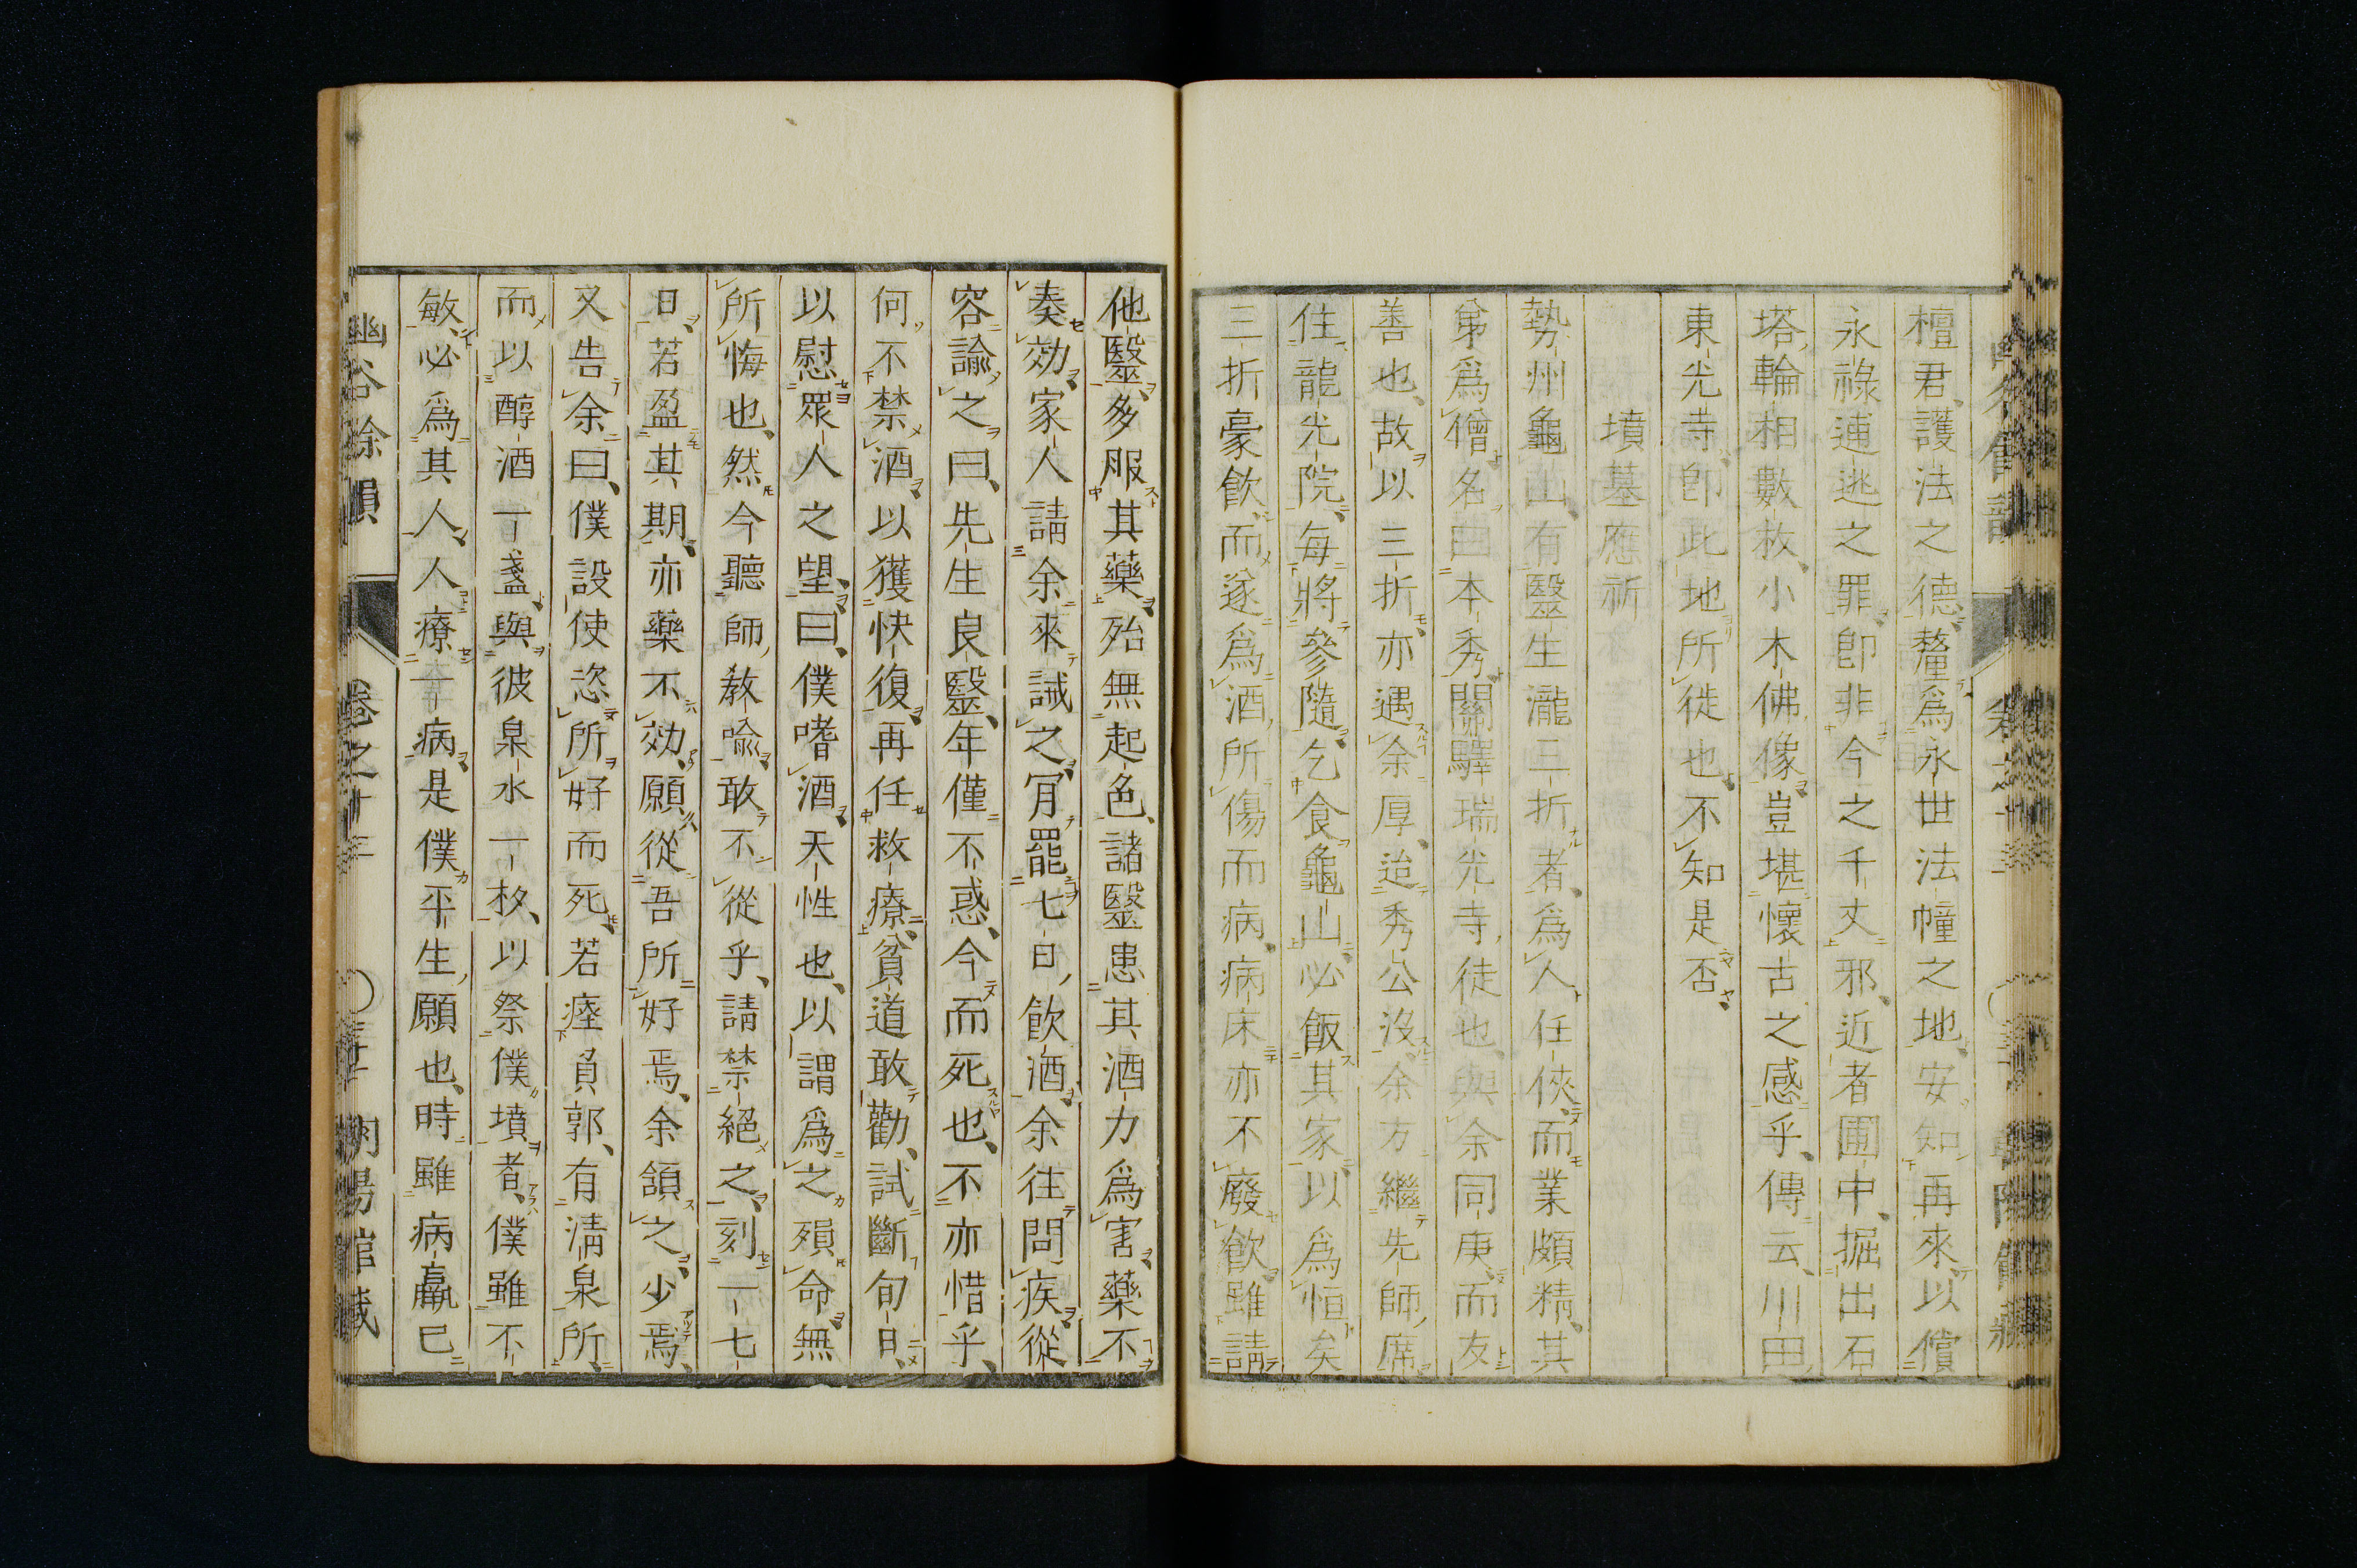 檀君、護法之德、釐爲永世法幢之地、安知再來以償
永祿逋逃之罪、卽非今之千丈邪、近者圃中、掘出石
塔、輪相數枚、小木佛像、豈堪懷古之感乎、傳云、川田
東光寺、卽此地所徙也、不知是否、
墳墓應祈
勢州龜山、有醫生瀧三折者、爲人任俠、而業頗精、其
弟爲僧、名曰本秀、關驛瑞光寺徒也、與余同庚而友
善也、故以三折亦遇余厚、迨秀公沒、余方繼先師席、
住龍光院、每將參隨乞食龜山、必飯其家、以爲恒矣
三折豪飮、而遂爲酒所傷而病、病床亦不廢飮、雖請
他醫、多服其藥、殆無起色、諸醫患其酒力爲害、藥不
奏効、家人請余來誡之、肎罷七日飮酒、余往問疾、從
容諭之曰、先生良醫、年僅不惑、今而死也、不亦惜乎、
何不禁酒、以獲快復、再任救療、貧道敢勸、試斷旬日、
以慰眾人之望、曰、僕嗜酒天性也、以謂爲之殞命無
所悔也、然今聽師敎喩、敢不從乎、請禁絕之、刻一七
日、若盈其期、亦藥不効、願從吾所好焉、余頷之、少焉、
又告余曰、僕設使恣所好而死、若瘞負郭、有淸泉所、
而以醇酒一盞、與彼泉水一杦、以祭僕墳者、僕雖不
敏、必爲其人、人療一病、是僕平生願也、時雖病羸已
幽谷餘韻 卷之十三 朝陽館藏